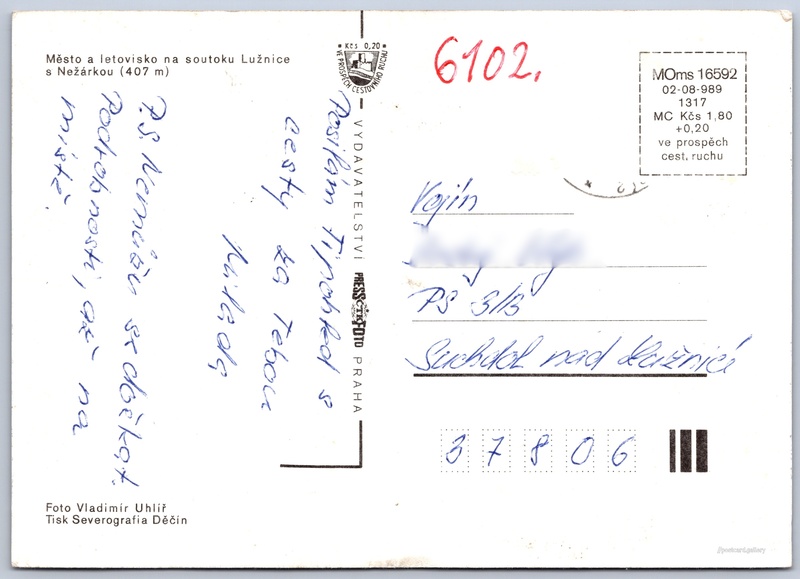 Město a letovisko na soutoku Lužnice
s Nežárkou (407 m)
Kčs 0,20
VE PROSPĚCH CESTOVNÍHO RUCHU
6102.
MOms 16592
02-08-989
1317
MC Kčs 1,80
+0,20
ve prospěch
cest. ruchu
Posílám Ti pohled s
cesty za Tebou
P.S. Nemůžu se dočkat.
Podrobnosti, až na
místě.
VYDAVATELSTVÍ PRESSFOTO PRAHA
ČTK
Vojín
PS 3/B
Suchdol nad Lužnicí
37806
Foto Vladimír Uhlíř
Tisk Severografia Děčín